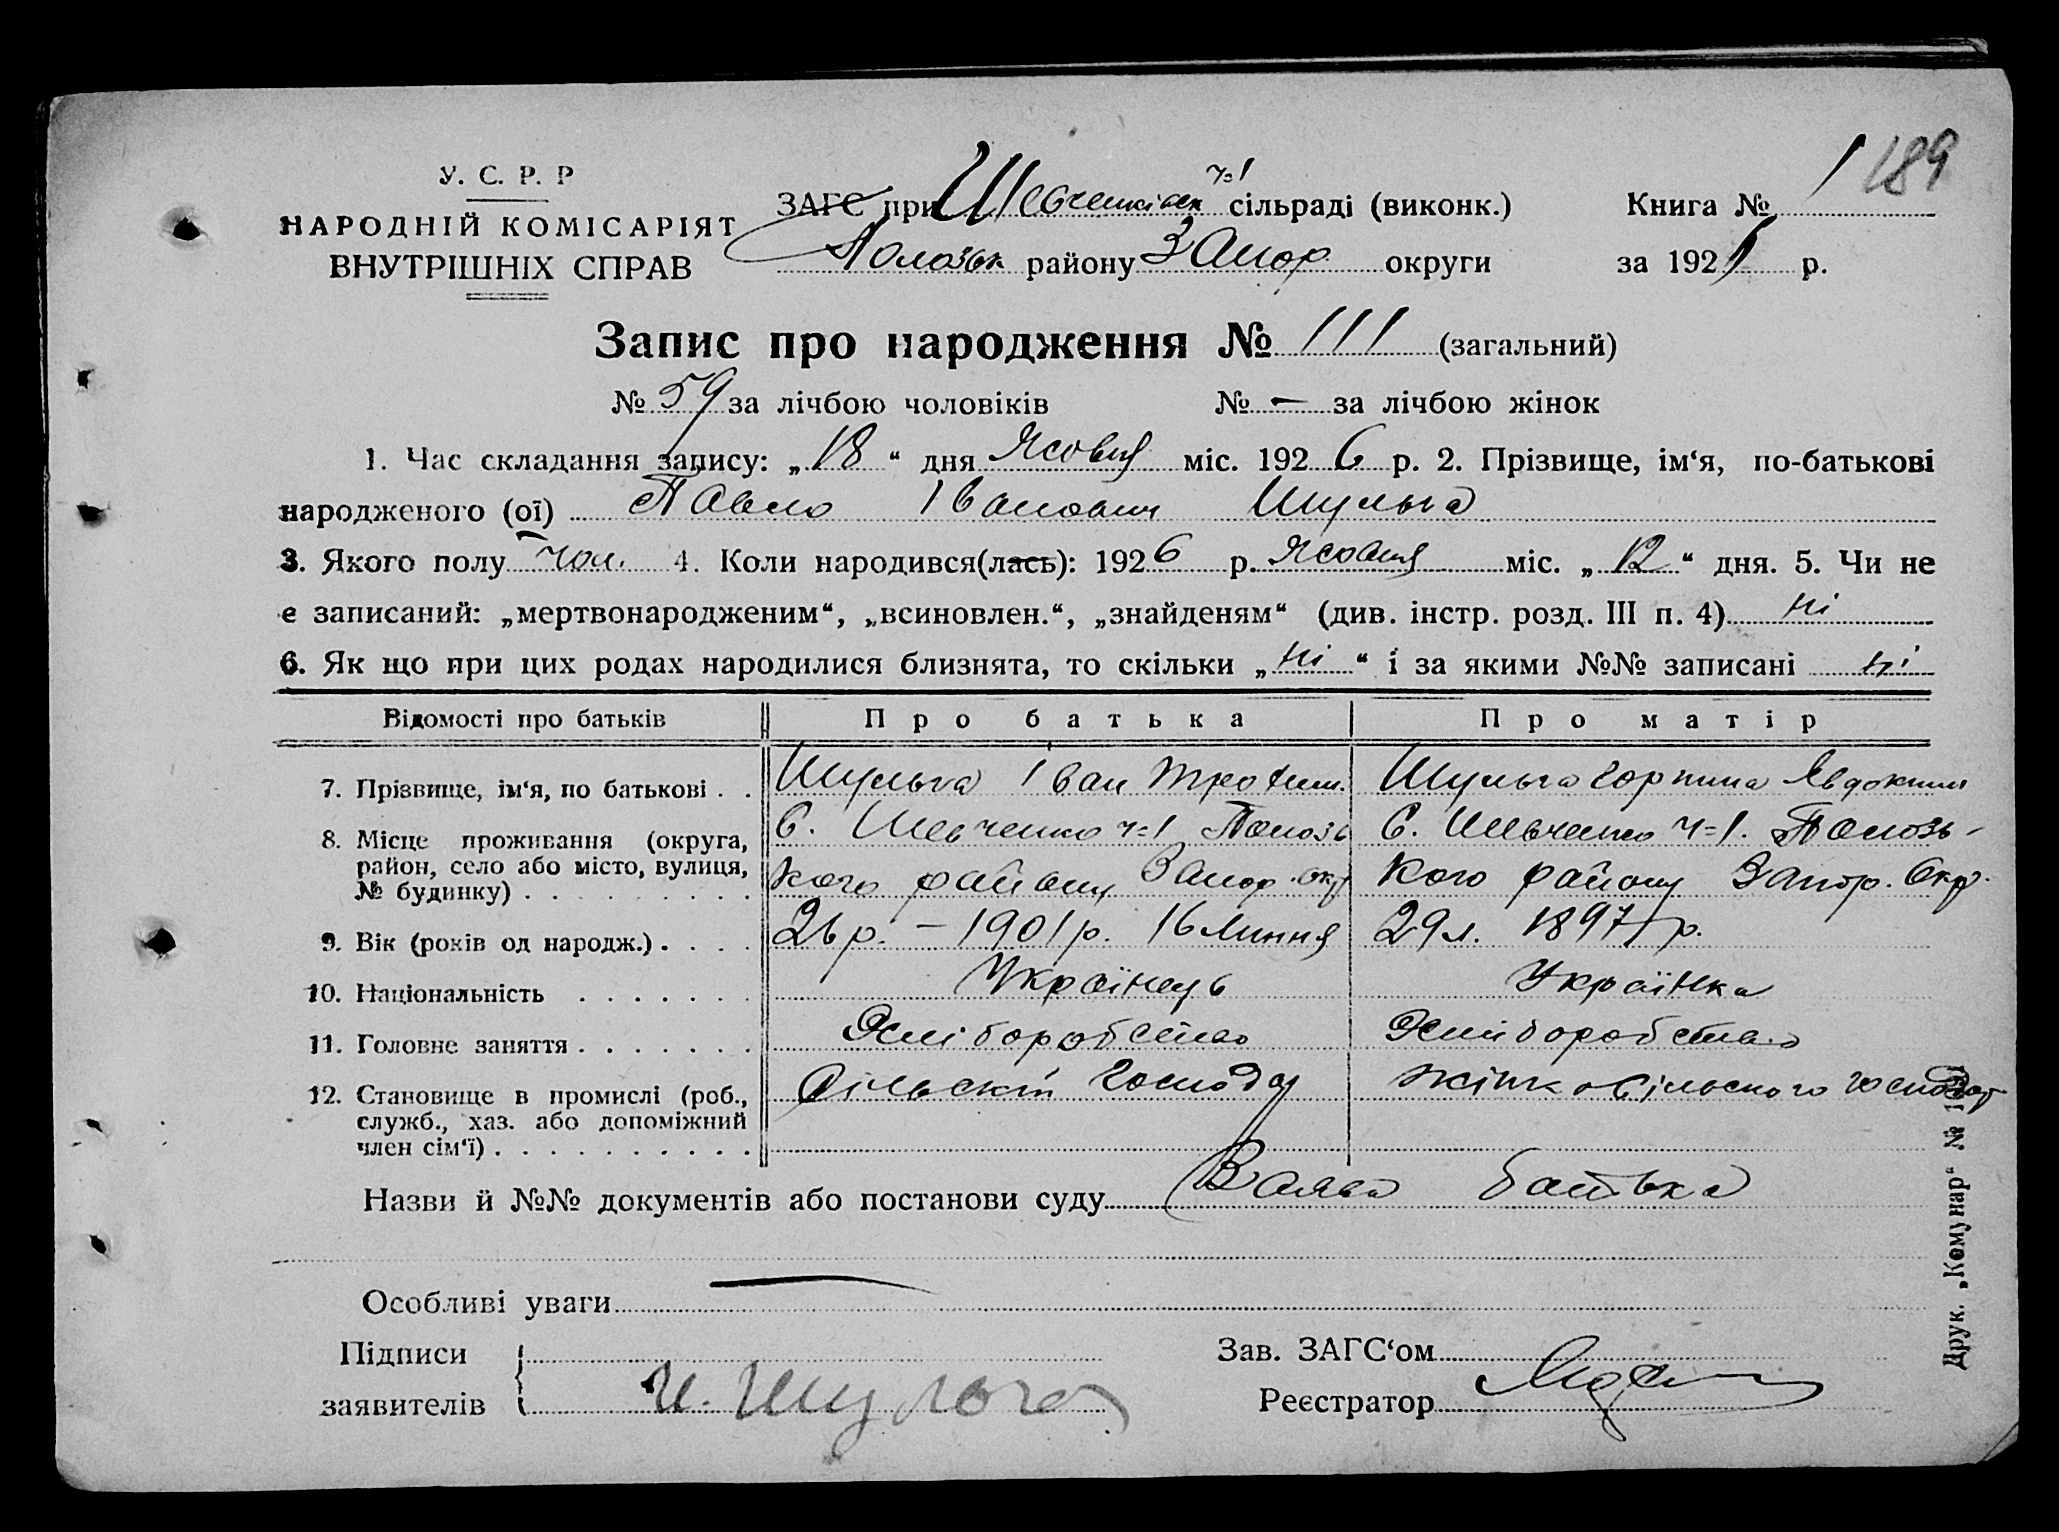 189
У. С. Р. Р
НАРОДНІЙ КОМІСАРІЯТ
ВНУТРІШНІХ СПРАВ
ЗАГС при Шевченківськ ч=1 сільраді (виконк.) Книга № 1
Полозьк району Запор округи за 192 р.
Запис про народження № 111 (загальний)
№ 59 за лічбою чоловіків № — за лічбою жінок
1. Час складання запису: „18“ дня Жовтя міс. 1926 р. 2. Прізвище, ім‘я, по-батькові
народженого (ої) Павло Іванович Шульга
3. Якого полу чол. 4. Коли народився(лась): 1926 р. Жовтя міс. „12“ дня. 5. Чи не
є записаний: „мертвонародженим“, „всиновлен.“, „знайденям“ (див. інстр. розд. III п. 4) ні
6. Як що при цих родах народилися близнята, то скільки „ні“ і за якими №№ записані ні
Відомості про батьків Про батька Про матір
7. Прізвище, ім‘я, по батькові . . Шульга Іван Трохим. Шульга Горпина Явдоким
8. Місце проживання (округа, район, село або місто, вулиця, № будинку) . . . . . . . . . С. Шевченко ч=1 Полозь
кого району Запор. окр С. Шевченко ч=1. Полозь-
кого району Запор. Окр.
9. Вік (років од народж.) . . . . 26 р. – 1901 р. 16 Липня 29 л. 1897 р.
10. Національність . . . . . . . Українець Українка
11. Головне заняття . . . . . . . Хліборобство Хліборобство
12. Становище в промислі (роб., служб., хаз. або допоміжний член сім‘ї) . . . . . . . . . . Сільскій Господар Жінка сільского господар
Назви й №№ документів або постанови суду Заява батька
Особливі уваги
Підписи
заявителів И. Шульга
Зав. ЗАГС‘ом
Реєстратор
Друк. „Комунар“ №